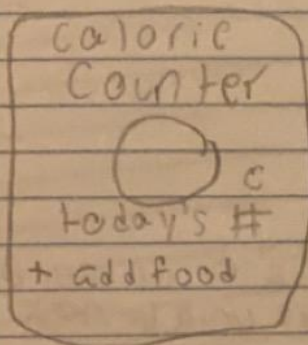 Calorie
Counter
c
today's #
+ add food